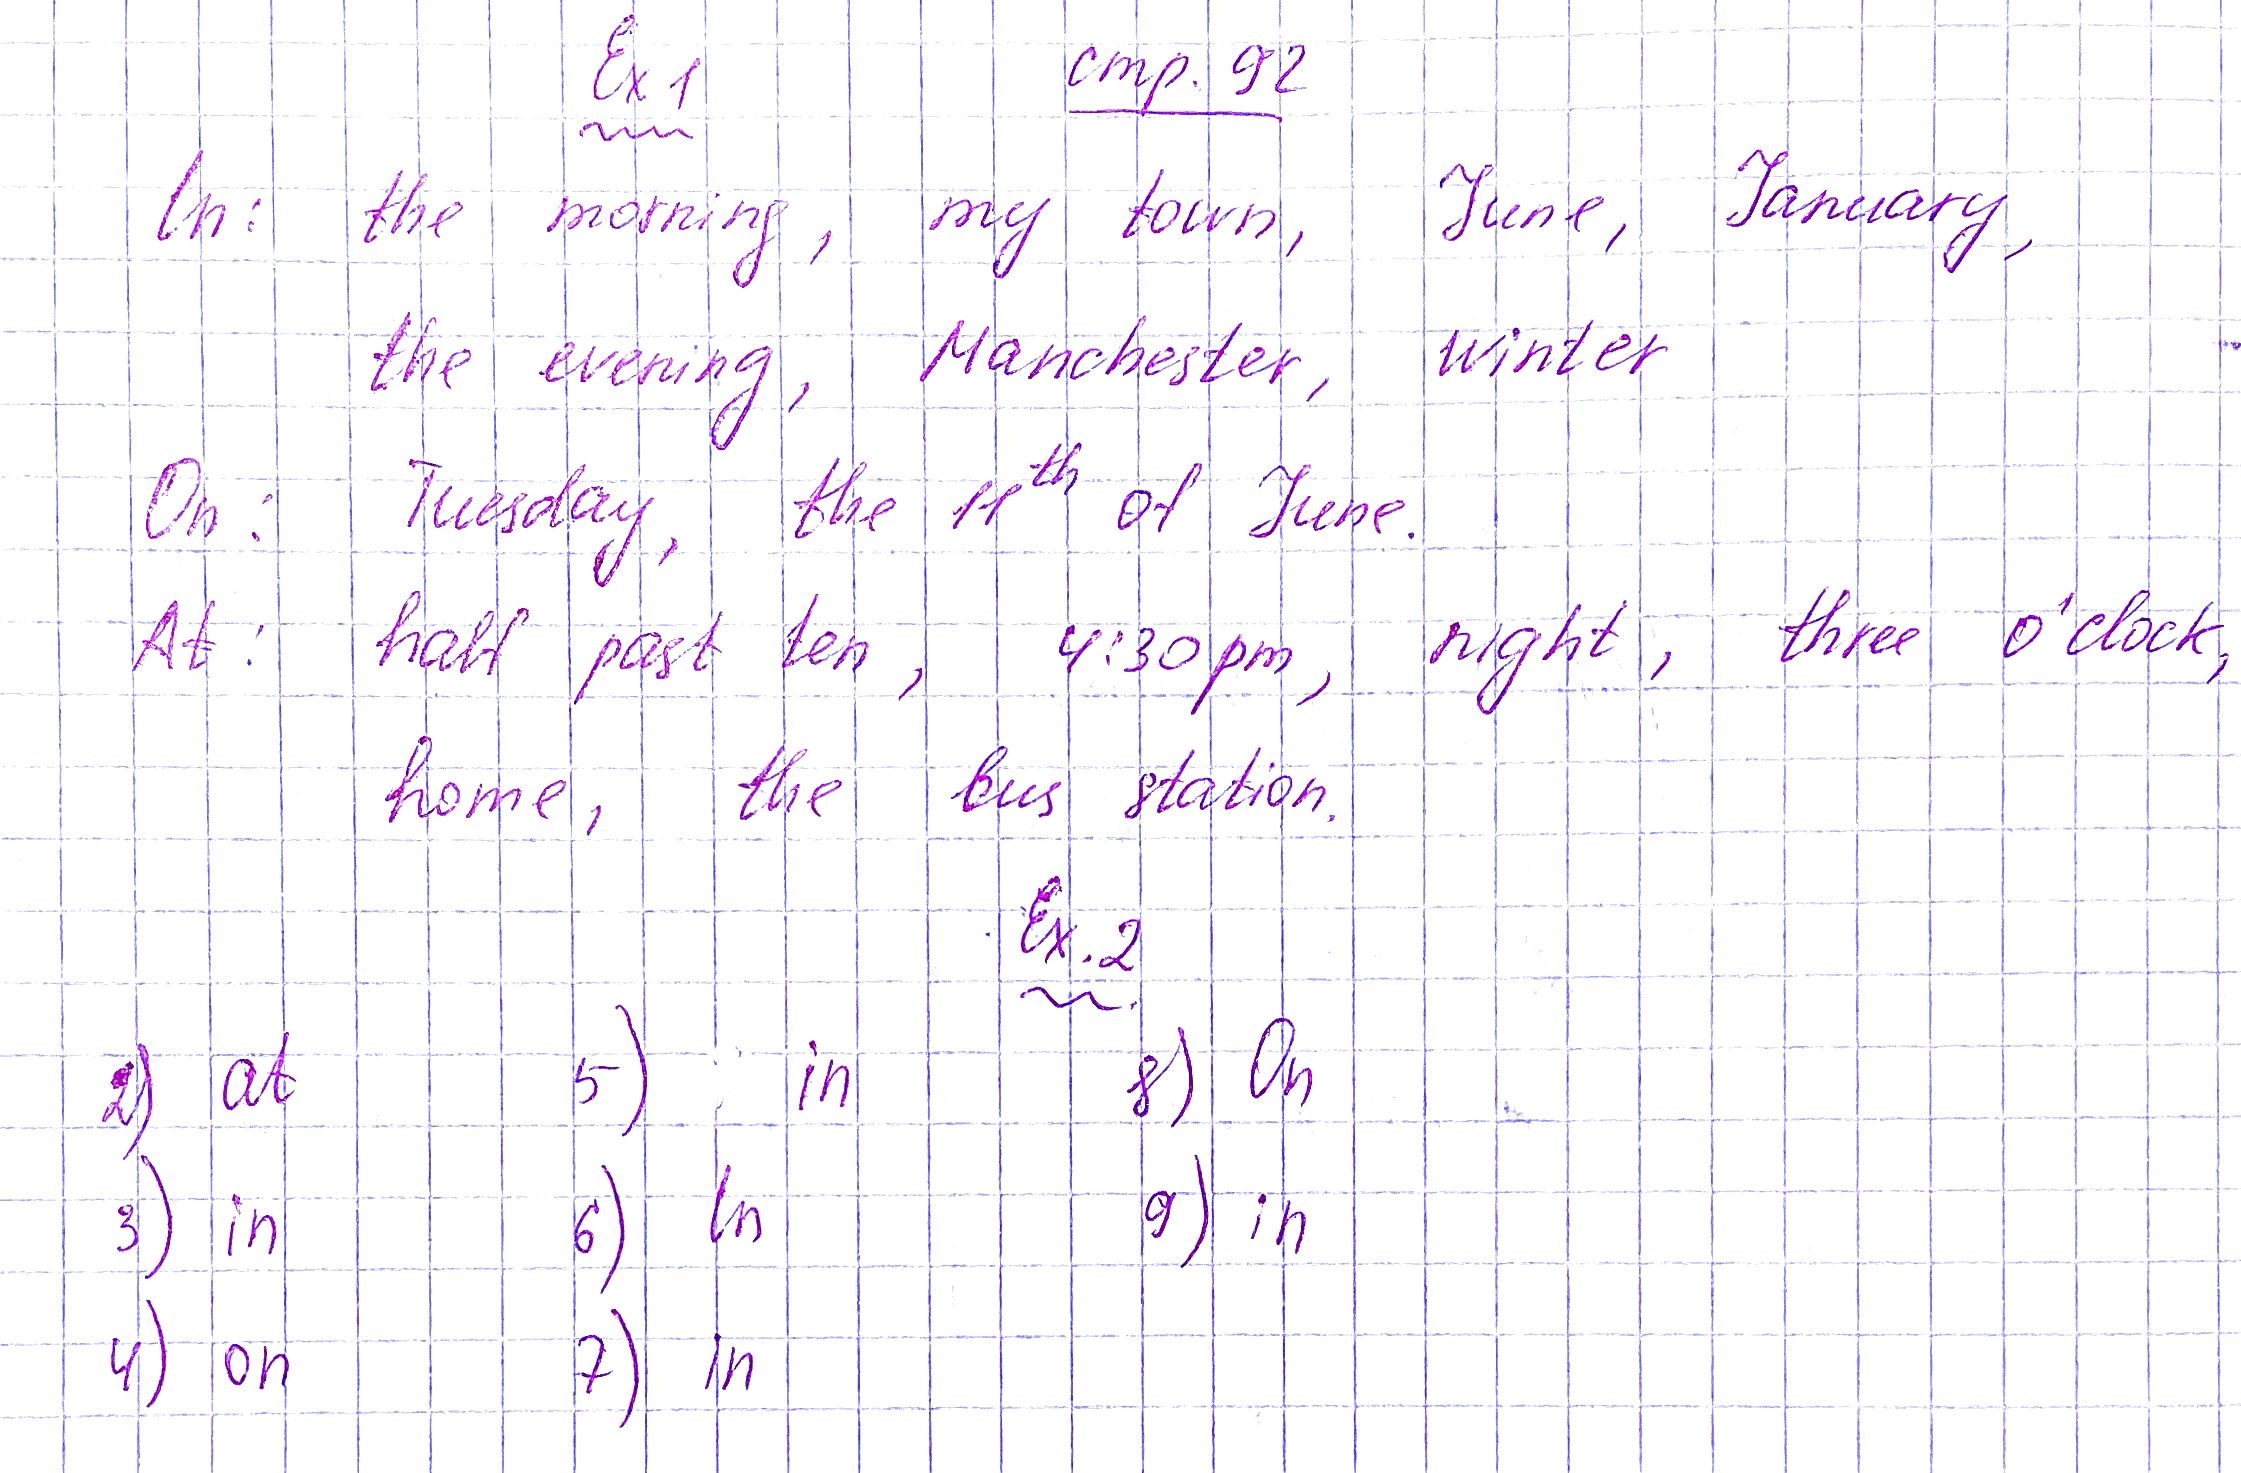 Ex 1 стр. 92
In: the morning, my town, June, January,
the evening, Manchester, winter
On: Tuesday, the 11th of June.
At: half past ten, 4:30 pm, night, three o'clock,
home, the bus station.
Ex. 2
2) at 5) in 8) On
3) in 6) In 9) in
4) on 7) in